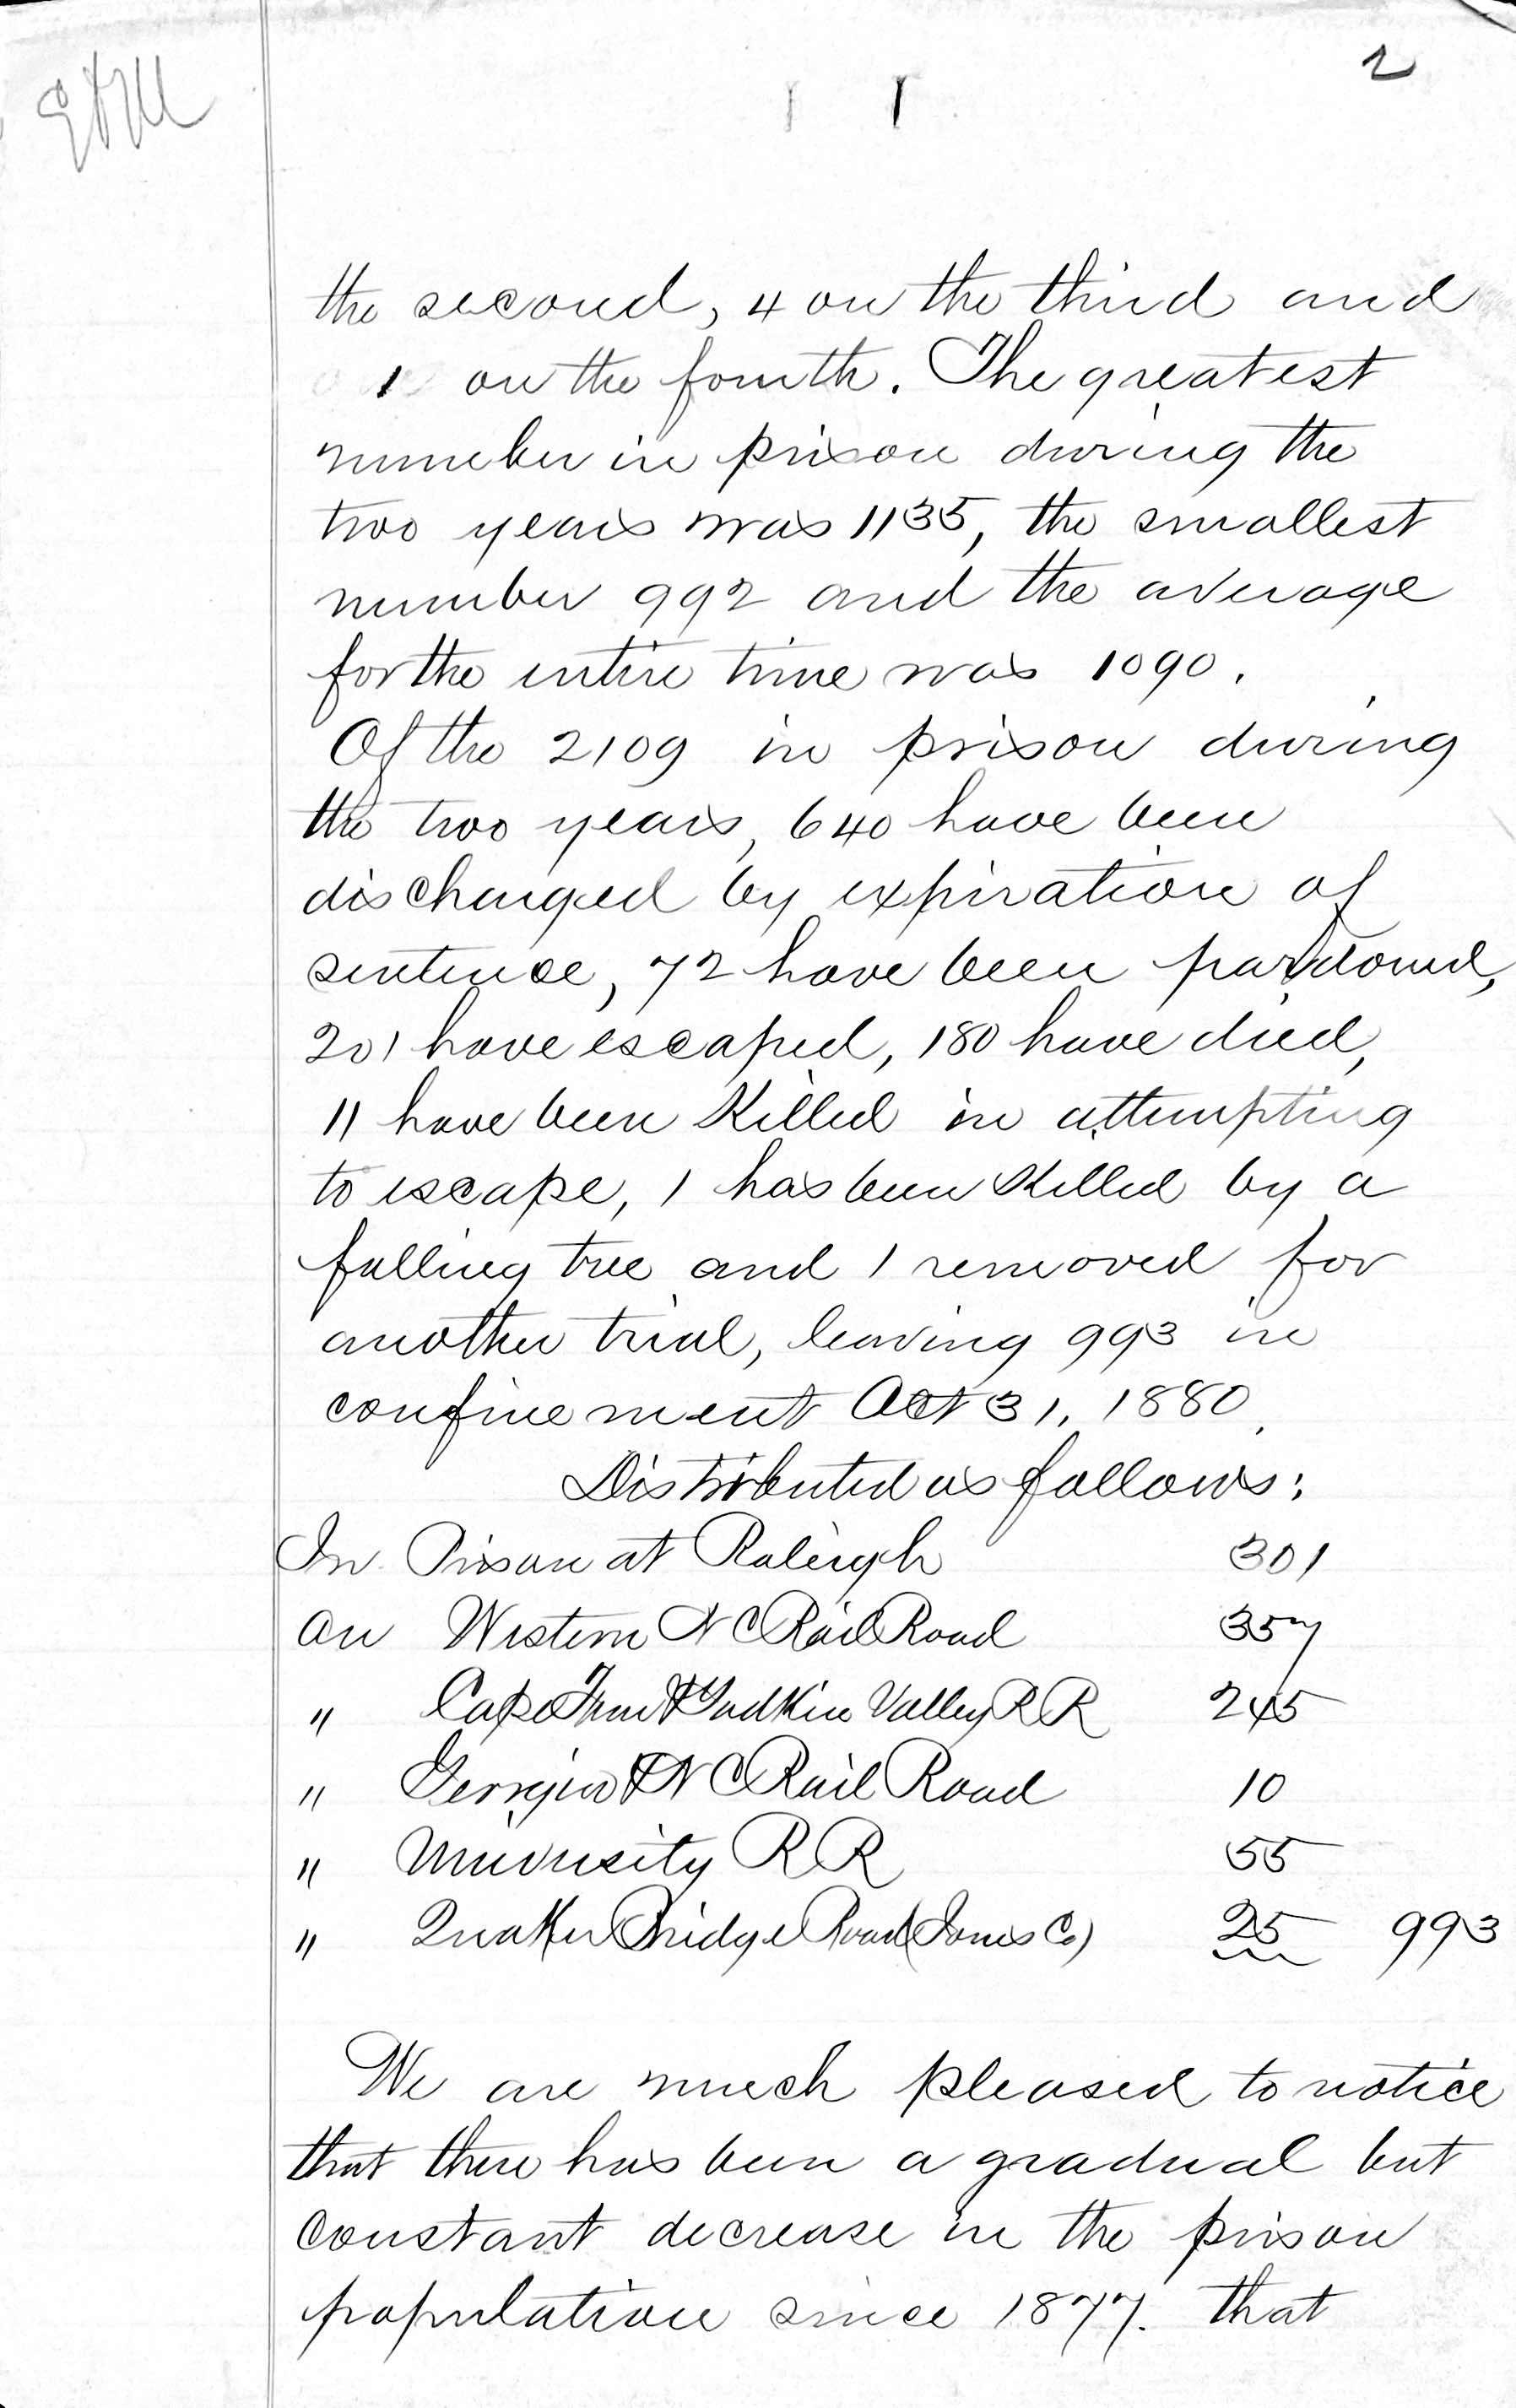 2
the second, 4 on the third and
1 on the fourth. The greatest
number in prison during the
two years was 1135, the smallest
number 992 and the average
for the entire time was 1090.
Of the 2109 in prison during
the two years, 640 have been
discharged by expiration of
sentence, 72 have been pardoned,
201 have escaped, 180 have died,
11 have been killed in attempting
to escape, 1 has been killed by a
falling tree and 1 removed for
another trial, leaving 993 in
confinement Oct 31, 1880.
Distributed as follows:
In Prison at Raleigh 301
On Western N C Rail Road 357
" Cape Fear & Yadkin Valley R R 245
" Georgia & N C Rail Road 10
" University R R 55
" Quaker Bridge Road (Jones Co) 25 993
We are much pleased to notice
that there has been a gradual but
constant decrease in the prison
population since 1877. That